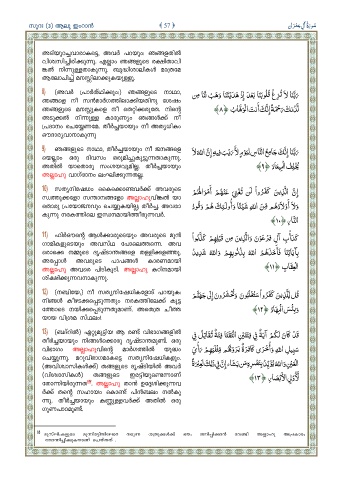 സൂറ (3) ആലു ഇംറാൻ
﴾ 57 ﴿
سُورَةُ آلِ عِمْرَان
അടിയുറച്ചവരാകട്ടെ, അവർ പറയും ഞങ്ങളതിൽ
വിശ്വസിച്ചിരിക്കുന്നു. എല്ലാം ഞങ്ങളുടെ രക്ഷിതാവി
ങ്കൽ നിന്നുള്ളതാകുന്നു. ബുദ്ധിശാലികൾ മാത്രമേ
ആലോചിച്ച് മനസ്സിലാക്കുകയുള്ളൂ.
8) (അവർ പ്രാർത്ഥിക്കും:) ഞങ്ങളുടെ നാഥാ,
ഞങ്ങളെ നീ സൻമാർഗത്തിലാക്കിയതിനു ശേഷം
ഞങ്ങളുടെ മനസ്സുകളെ നീ തെറ്റിക്കരുതേ. നിന്റെ
അടുക്കൽ നിന്നുള്ള കാരുണ്യം ഞങ്ങൾക്ക് നീ
പ്രദാനം ചെയ്യേണമേ. തീർച്ചയായും നീ അത്യധികം
ഔദാര്യവാനാകുന്നു
رَبَّنَا لَا تُزِغْ قُلُوبَنَا بَعْدَ إِذْ هَدَيْتَنَا وَهَبْ لَنَا مِن
لَّدُنكَ رَحْمَةً إِنَّكَ أَنتَ الْوَهَّابُ ﴿٨﴾
9) ഞങ്ങളുടെ നാഥാ, തീർച്ചയായും നീ ജനങ്ങളെ
യെല്ലാം ഒരു ദിവസം ഒരുമിച്ചുകൂട്ടുന്നതാകുന്നു.
അതിൽ യാതൊരു സംശയവുമില്ല. തീർച്ചയായും
അല്ലാഹു വാഗ്ദാനം ലംഘിക്കുന്നതല്ല.
رَبَّنَا إِنَّكَ جَامِعُ النَّاسِ لِيَوْمٍ لَّا رَيْبَ فِيهِ إِنَّ اللَّهَ لَا
يُخْلِفُ الْمِيعَادَ ﴿٩﴾
10) സത്യനിഷേധം കൈക്കൊണ്ടവർക്ക് അവരുടെ
സ്വത്തുക്കളോ സന്താനങ്ങളോ അല്ലാഹുവിങ്കൽ യാ
തൊരു പ്രയോജനവും ചെയ്യുകയില്ല തീർച്ച. അവരാ
കുന്നു നരകത്തിലെ ഇന്ധനമായിത്തീരുന്നവർ.
إِنَّ الَّذِينَ كَفَرُوا لَن تُغْنِيَ عَنْهُمْ أَمْوَالُهُمْ
وَلَا أَوْلَادُهُم مِّنَ اللَّهِ شَيْئًا وَأُولَٰئِكَ هُمْ وَقُودُ
النَّارِ ﴿١٠﴾
11) ഫിർഔന്റെ ആൾക്കാരുടെയും അവരുടെ മുൻ
ഗാമികളുടെയും അവസ്ഥ പോലെത്തന്നെ. അവ
രൊക്കെ നമ്മുടെ ദൃഷ്ടാന്തങ്ങളെ തള്ളിക്കളഞ്ഞു.
അപ്പോൾ അവരുടെ പാപങ്ങൾ കാരണമായി
അല്ലാഹു അവരെ പിടികൂടി. അല്ലാഹു കഠിനമായി
ശിക്ഷിക്കുന്നവനാകുന്നു.
كَدَأْبِ آلِ فِرْعَوْنَ وَالَّذِينَ مِن قَبْلِهِمْ كَذَّبُوا
بِآيَاتِنَا فَأَخَذَهُمُ اللَّهُ بِذُنُوبِهِمْ وَاللَّهُ شَدِيدُ
الْعِقَابِ ﴿١١﴾
12) (നബിയേ,) നീ സത്യനിഷേധികളോട് പറയുക:
നിങ്ങൾ കീഴടക്കപ്പെടുന്നതും നരകത്തിലേക്ക് കൂട്ട
ത്തോടെ നയിക്കപ്പെടുന്നതുമാണ്. അതെത്ര ചീത്ത
യായ വിശ്രമ സ്ഥലം!
قُل لِّلَّذِينَ كَفَرُوا سَتُغْلَبُونَ وَتُحْشَرُونَ إِلَىٰ جَهَنَّمَ
وَبِئْسَ الْمِهَادُ ﴿١٢﴾
13) (ബദ്റിൽ) ഏറ്റുമുട്ടിയ ആ രണ്ട് വിഭാഗങ്ങളിൽ
തീർച്ചയായും നിങ്ങൾക്കൊരു ദൃഷ്ടാന്തമുണ്ട്. ഒരു
വിഭാഗം അല്ലാഹുവിന്റെ മാർഗത്തിൽ യുദ്ധം
ചെയ്യുന്നു. മറുവിഭാഗമാകട്ടെ സത്യനിഷേധികളും.
(അവിശ്വാസികൾക്ക്) തങ്ങളുടെ ദൃഷ്ടിയിൽ അവർ
(വിശ്വാസികൾ) തങ്ങളുടെ ഇരട്ടിയുണ്ടെന്നാണ്
തോന്നിയിരുന്നത്. അല്ലാഹു താൻ ഉദ്ദേശിക്കുന്നവ
ർക്ക് തന്റെ സഹായം കൊണ്ട് പിൻബലം നൽകു
ന്നു. തീർച്ചയായും കണ്ണുള്ളവർക്ക് അതിൽ ഒരു
ഗുണപാഠമുണ്ട്.
قَدْ كَانَ لَكُمْ آيَةٌ فِي فِئَتَيْنِ الْتَقَتَا فِئَةٌ تُقَاتِلُ فِي
سَبِيلِ اللَّهِ وَأُخْرَىٰ كَافِرَةٌ يَرَوْنَهُم مِّثْلَيْهِمْ رَأْيَ
الْعَيْنِ وَاللَّهُ يُؤَيِّدُ بِنَصْرِهِ مَن يَشَاءُ إِنَّ فِي ذَٰلِكَ لَعِبْرَةً
لِّأُولِي الْأَبْصَارِ ﴿١٣﴾